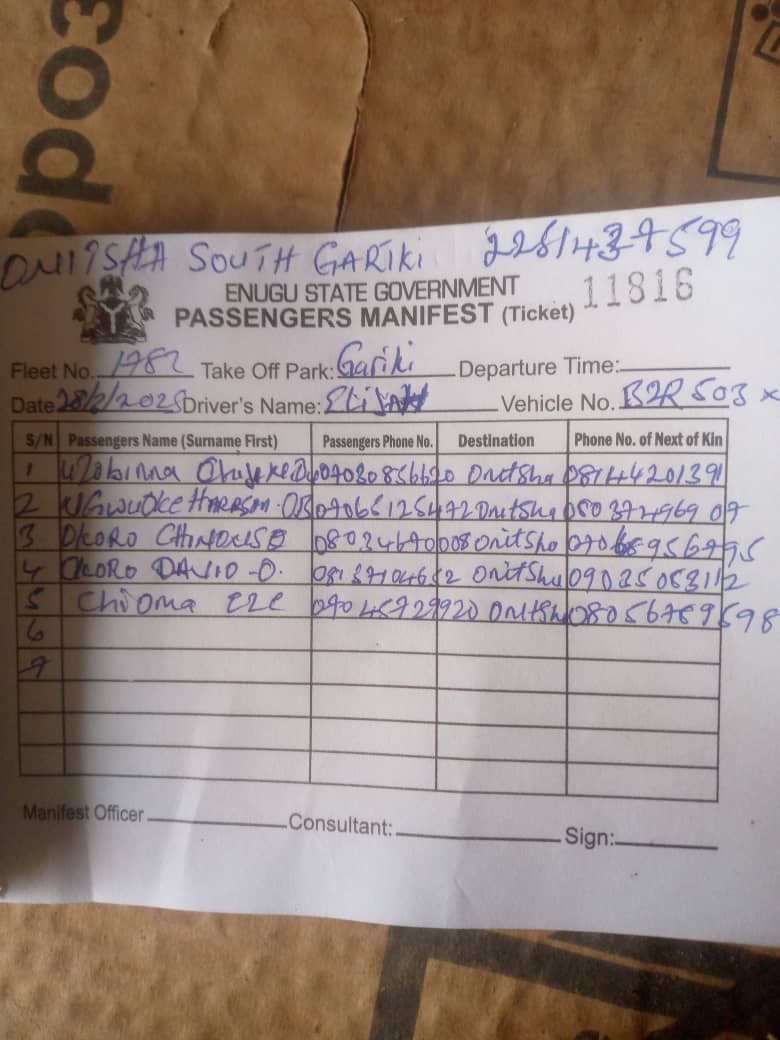 ONITSHA SOUTH GARIKI 2281437599
ENUGU STATE GOVERNMENT 11816
PASSENGERS MANIFEST (Ticket)
Fleet No. 1782 Take Off Park: Gariki Departure Time:
Date 28/2/2025 Driver's Name: Elijah Vehicle No. B2R 503 X
S/N Passengers Name (Surname First) Passengers Phone No. Destination Phone No. of Next of Kin
1 Uzobinna 07030856620 Onitsha 08144201391
2 UGwuoke HARRSON. OB 07066125472 Onitsha 08037496907
3 OKORO CHINOUSO 08034670008 Onitsho 07068956795
4 OKORO DAVID-O. 08137104652 Onitsha 09035053112
5 Chioma EZE 07045729920 Onitsha 08056789598
6
7
Manifest Officer Consultant: Sign: